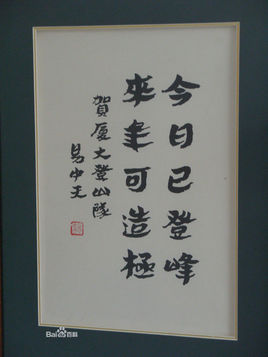 今日已登峰
來年可造極
賀厦大登山隊
易中天
Bai百科